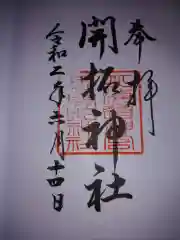 奉拝
開拓神社
令和二年二月十四日